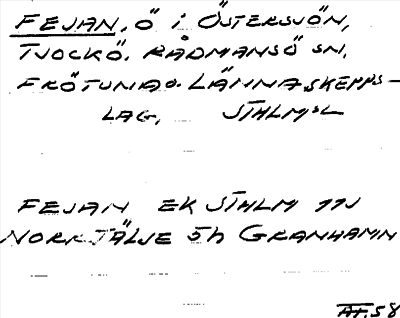 FEJAN, Ö i ÖSTERSJÖN,
TJOCKÖ. RÅDMANSÖ SN,
FRÖTUNA O. LÄNNA SKEPPS-
LAG, STHLMS L
FEJAN EK STHLM 11J
NORRTÄLJE 5h GRANHAMN
AF. 58